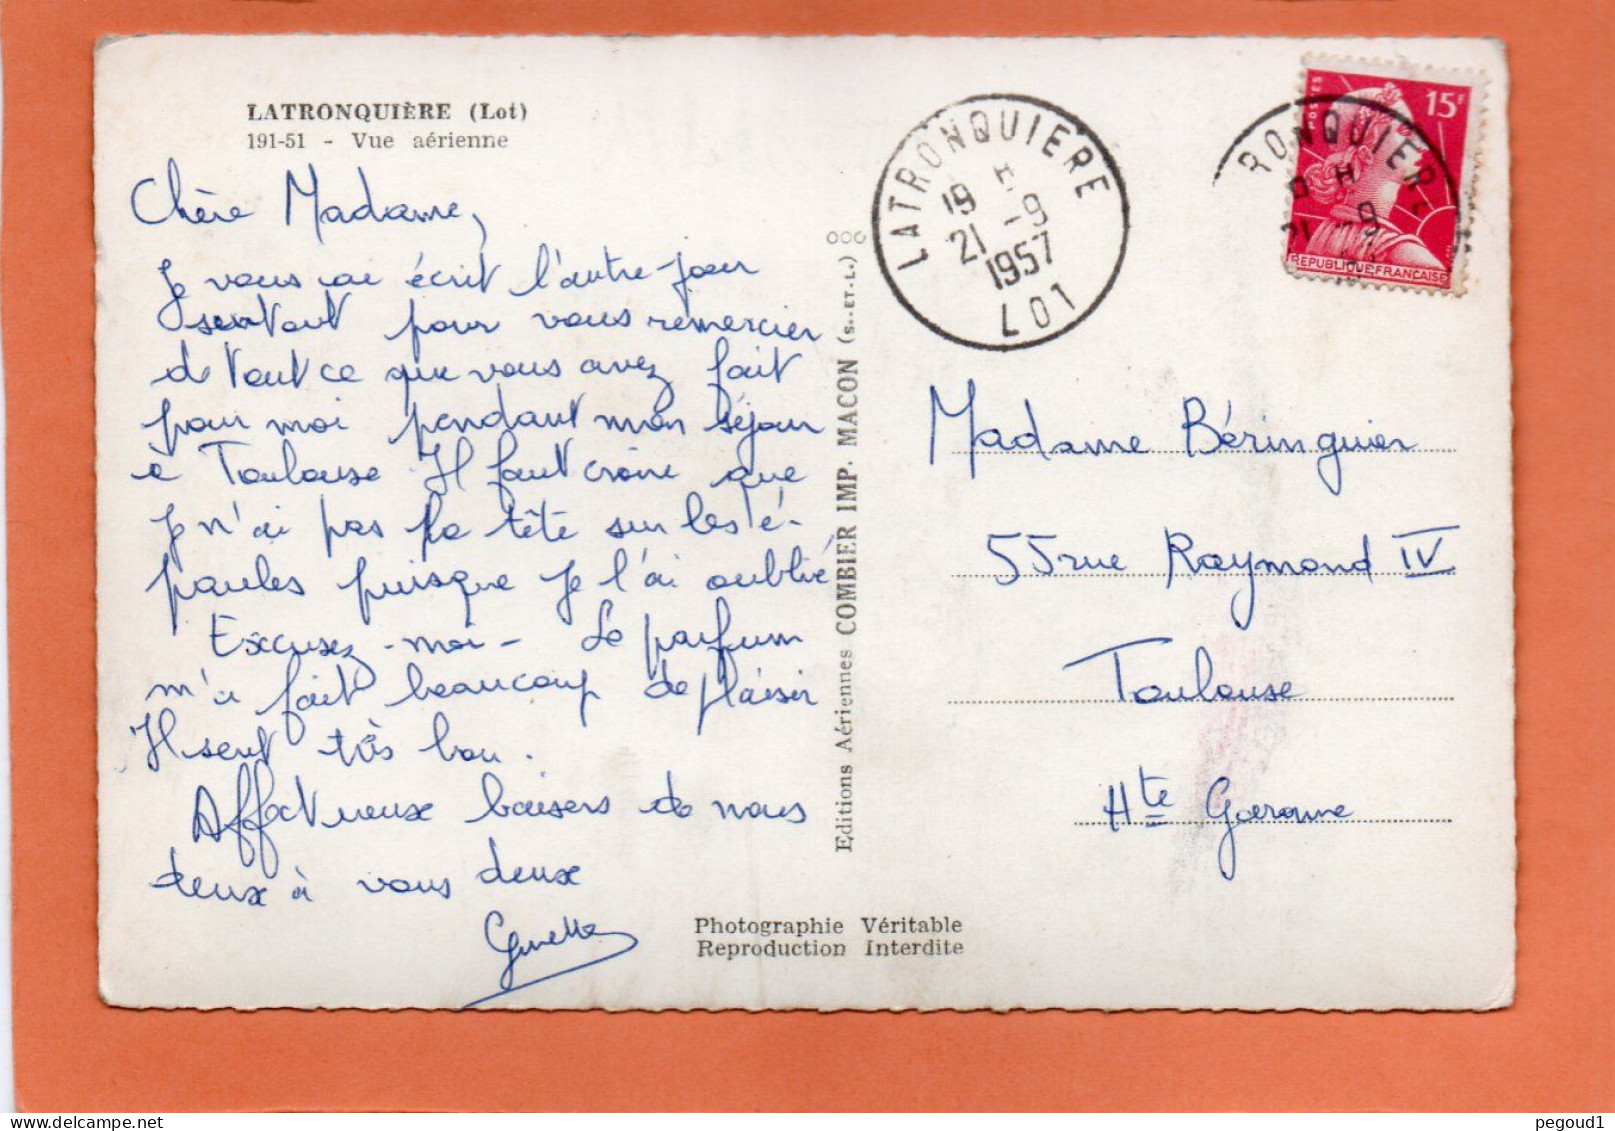 LATRONQUIÈRE (Lot)
191-51 - Vue aérienne
Chère Madame,
Je vous ai écrit l'autre jour
surtout pour vous remercier
de tout ce que vous avez fait
pour moi pendant mon séjour
à Toulouse Il faut croire que
Je n'ai pas la tête sur les é-
paules puisque je l'ai oublié
Excusez-moi - Le parfum
m'a fait beaucoup de plaisir
Il sent très bon.
Affectueux baisers de nous
deux à vous deux
Ginette
Editions Aériennes COMBIER IMP. MACON (S.-ET-L.)
000
Photographie Véritable
Reproduction Interdite
LATRONQUIERE
19 H
21 -9
1957
LOT
POSTES
15F
REPUBLIQUE FRANÇAISE
RONQUIERE
H
21 -9
Madame Béringuier
55 rue Raymond IV
Toulouse
Hte Garonne
pegoud1